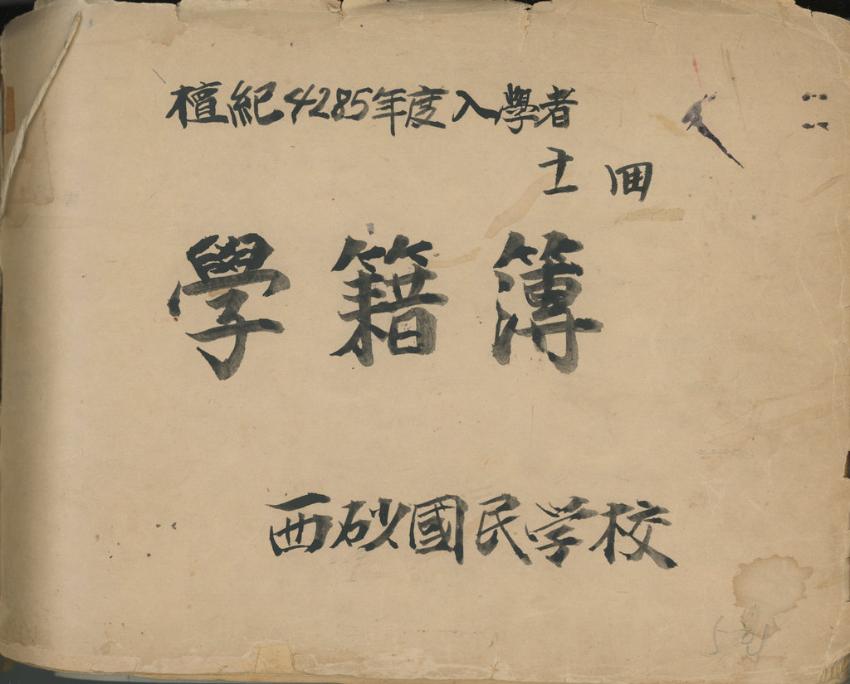 檀紀4285年度入學者
士 囬
學籍簿
西砂國民学校